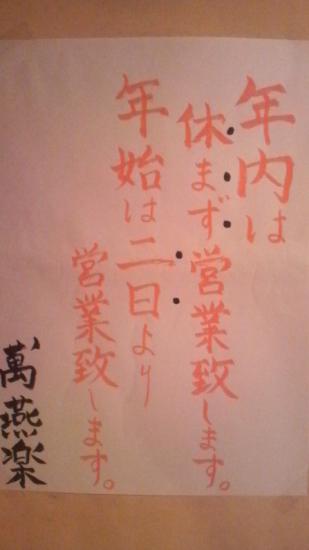 年内は
休まず営業致します。
年始は二日より
営業致します。
萬燕楽